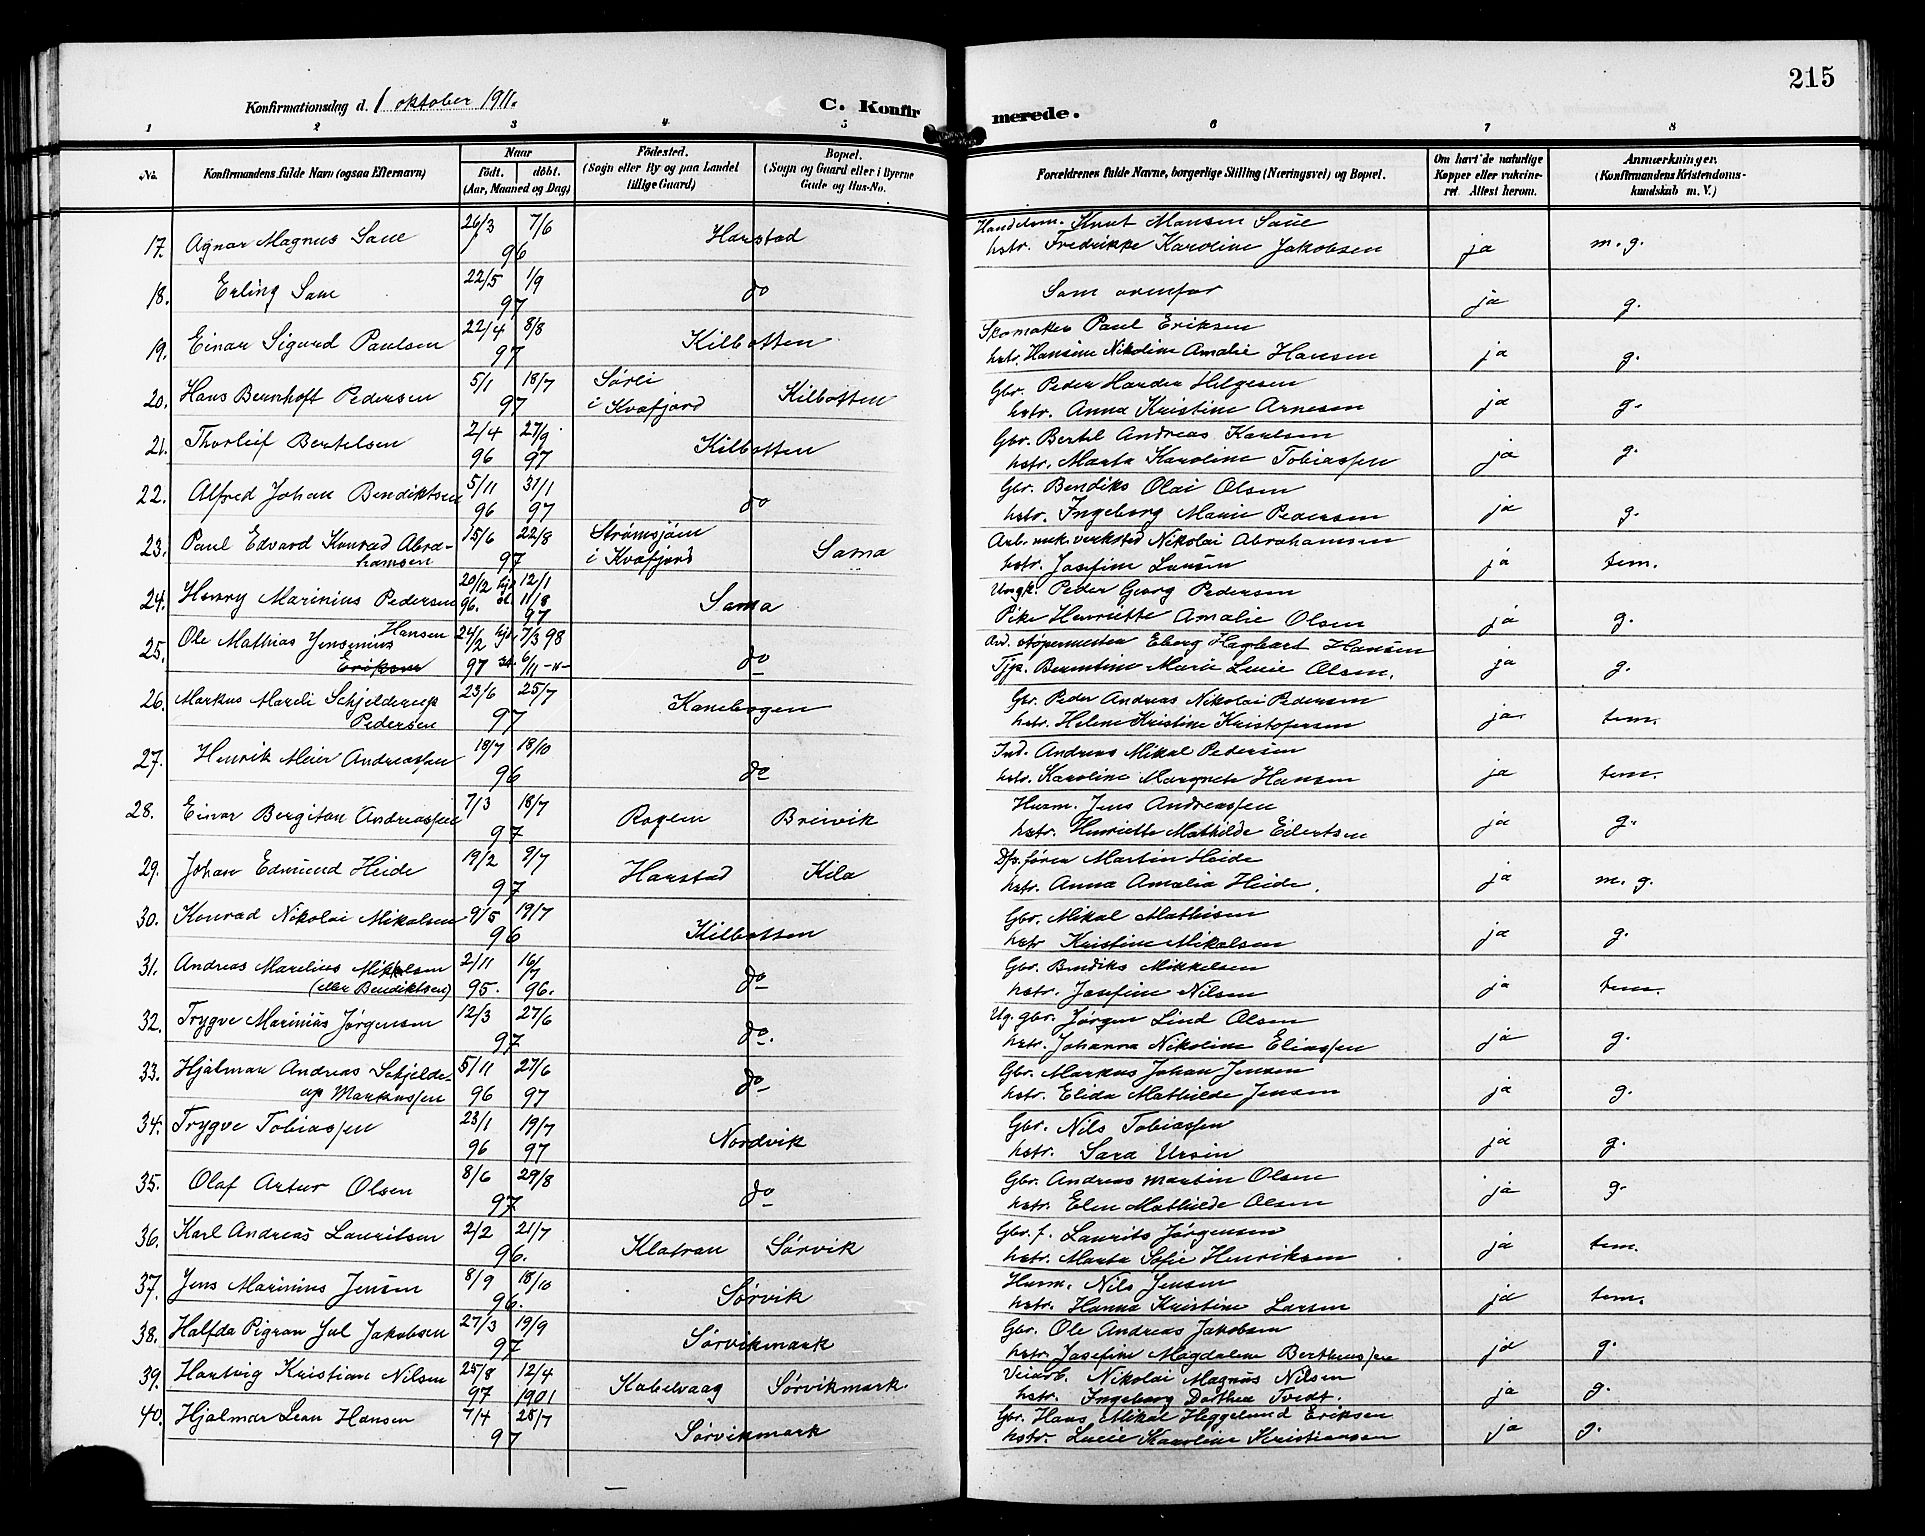 215
Konfirmationsdag d. 1 oktober 1911.
C. Konfir
merede.
1 2 3 4 5 6 7 8
No.
Konfirmandens fulde Navn (ogsaa Efternavn)
Naar
född. döbt.
(Aar, Maaned og Dag)
Födested.
(Sogn eller By og paa Landet
tillige Gaard)
Bopæl.
(Sogn og Gaard eller i Byerne
Gade og Hus-No.
Forældrenes fulde Navne, borgerlige Stilling (Næringsvei) og Bopæl.
Om havt de naturlige
Kopper eller vakcine-
ret. Attest herom.
Anmærkninger.
(Konfirmandens Kristendoms-
kundskab m. V.)
17. Agnar Magnus Saue 26/3 7/6 96 Harstad Handelsm. Knut Monsen Saue
hstr. Fredrikke Karoline Jakobsen ja m. g.
18. Erling Saue 22/5 1/9 97 do Som ovenfor ja g.
19. Einar Sigurd Paulsen 22/4 8/8 97 Kilbotten Skomaker Paul Eriksen
hstr. Hansine Nikoline Amalie Hansen ja g.
20. Hans Bernhoft Pedersen 5/1 18/7 97 Sørli
i Kvæfjord Kilbotten Gbr. Peder Harder Helgesen
hstr. Anna Kristine Arnesen ja g.
21. Thorleif Bertelsen 2/4 96 27/9 97 Kilbotten Gbr. Bertel Andreas Karlsen
hstr. Marta Karoline Tobiassen ja g.
22. Alfred Johan Bendiktsen 5/11 96 31/1 97 do Gbr. Bendiks Olai Olsen
hstr. Ingeborg Marie Pedersen ja g.
23. Paul Edvard Konrad Abra-
hamsen 15/6 22/8 97 Strømsjøen
i Kvæfjord Sama Arb. mek. verksted Nikolai Abrahamsen
hstr. Josefine Larsen ja tem.
24. Henry Marinius Pedersen 20/12 96. hjd 12/1 st. 11/8 97 Sama Ungk. Peder Georg Pedersen
Pike Henriette Amalie Olsen ja g.
25. Ole Mathias Jensenius Hansen
Eriksen 24/2 97 hjd 7/3 98 st. 6/11 -"- do Støpermester Eberg Hagbart Hansen
Tjp. Berntine Marie Lucie Olsen. ja g.
26. Markus Mareli Schjelderup
Pedersen 23/6 25/7 97 Kanebogen Gbr. Peder Andreas Nikolai Pedersen
hstr. Helene Kristine Kristofersen ja tem.
27. Henrik Meier Andreassen 18/7 18/10 96 do Ind. Andreas Mikal Pedersen
hstr. Karoline Margrete Hansen ja tem.
28. Einar Bergiton Andreassen 7/3 18/7 97 Rogern Breivik Husm. Jens Andreassen
hstr. Henriette Mathilde Eilertsen ja g.
29. Johan Edmund Heide 19/2 9/7 97 Harstad Kila Dfs.fører Martin Heide
hstr. Anna Amalia Heide. ja m. g.
30. Konrad Nikolai Mikalsen 9/5 19/7 96 Kilbotten Gbr. Mikal Mathisen
hstr Kristine Mikalsen ja g.
31. Andreas Marelius Mikkelsen
(eller Bendiktsen) 2/11 95. 16/7 96. do Gbr. Bendiks Mikkelsen
hstr. Josefine Nilsen ja tem.
32. Trygve Marinius Jørgensen 12/3 27/6 97 do. Ug. gbr. Jørgen Lind Olsen
hstr. Johanna Nikoline Eliassen ja g.
33. Hjalmar Andreas Schjelde-
rup Markussen 5/11 96 27/6 97 do Gbr. Markus Johan Jensen
hstr. Elida Mathilde Jensen ja g.
34. Trygve Tobiassen 23/1 96 19/7 97 Nordvik Gbr. Nils Tobiassen
hstr. Sara Ursin ja g.
35. Olaf Artur Olsen 8/6 29/8 97 do Gbr. Andreas Martin Olsen
hstr. Elen Mathilde Olsen ja g.
36. Karl Andreas Lauritsen 2/2 21/7 96. Klatran Sørvik Gbr. f. Laurits Jørgensen
hstr. Marta Sofie Henriksen ja tem.
37. Jens Marinius Jensen 8/9 18/10 96. Sørvik Husm. Nils Jensen
hstr. Hanna Kristine Larsen ja tem.
38. Halfda Pigran Jul Jakobsen 27/3 19/9 97 Sørvikmark Gbr. Ole Andreas Jakobsen
hstr. Josefine Magdalene Bertheussen ja g.
39. Hartvig Kristian Nilsen 25/8 97 12/4 1901 Kabelvaag Sørvikmark. Veiarb. Nikolai Magnus Nilsen
hstr. Ingeborg Dorthea Tvedt. ja g.
40. Hjalmar Lean Hansen 7/4 25/7 97 Sørvikmark Gbr. Hans Mikal Heggelund Eriksen
hstr. Lucie Karoline Kristiansen ja g.